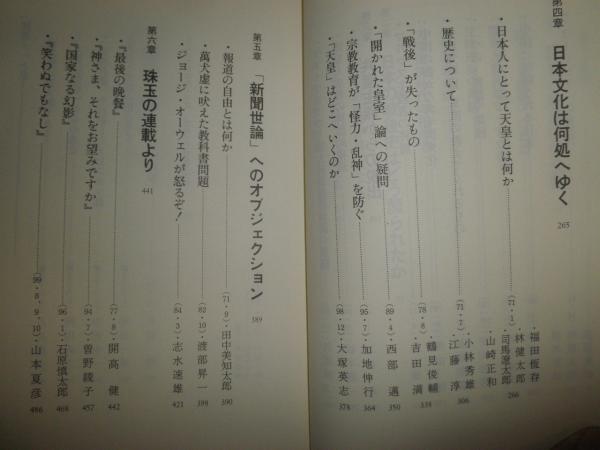 第四章 日本文化は何処へゆく 265
・日本人にとって天皇とは何か (71・1) 福田恆存 林健太郎 司馬遼太郎 山崎正和 266
・歴史について (71・7) 小林秀雄 江藤淳 306
・「戦後」が失ったもの (78・8) 鶴見俊輔 吉田満 338
・「開かれた皇室」論への疑問 (89・4) 西部邁 350
・宗教教育が「怪力・乱神」を防ぐ (95・7) 加地伸行 364
・「天皇」はどこへいくのか (98・12) 大塚英志 378
第五章 「新聞世論」へのオブジェクション 389
・報道の自由とは何か (71・9) 田中美知太郎 390
・萬犬虚に吠えた教科書問題 (82・10) 渡部昇一 398
・ジョージ・オーウェルが怒るぞ! (84・3) 志水速雄 421
第六章 珠玉の連載より 441
・『最後の晩餐』 (77・8) 開高健 442
・『神さま、それをお望みですか』 (94・7) 曽野綾子 457
・『国家なる幻影』 (96・1) 石原慎太郎 468
・『笑わぬでもなし』 (99・8、9、10) 山本夏彦 486